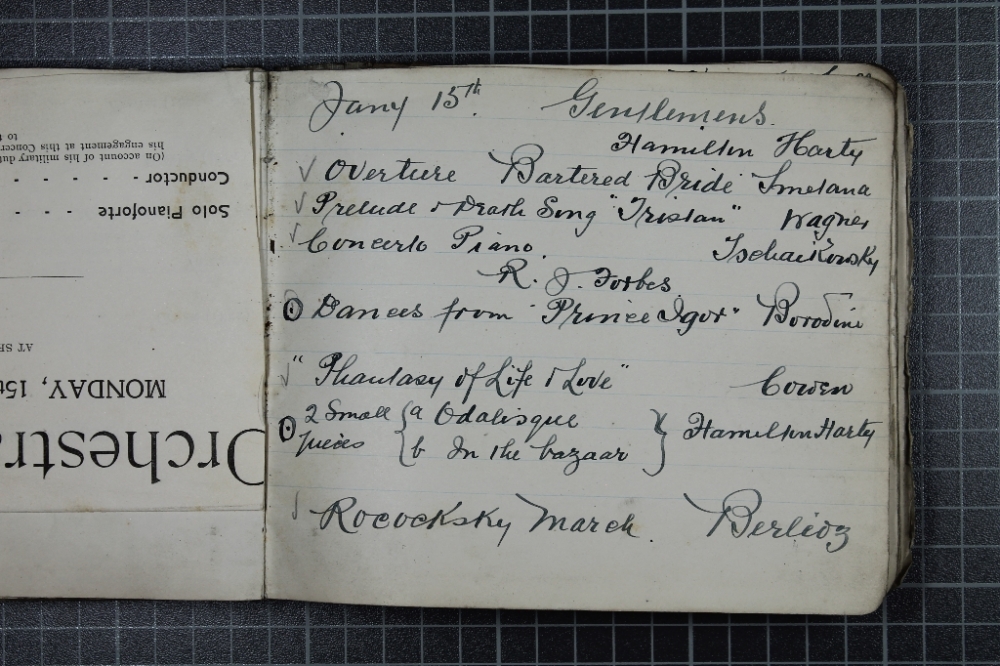 Jany 15th. Gentlemens.
Hamilton Harty
✓ Overture Bartered Bride Smetana
✓ Prelude & Death Song "Tristan" Wagner
✓ Concerto Piano. Tschaikowsky
R. J. Forbes
Dances from "Prince Igor" Borodini
✓ "Phantasy of Life & Love" Cowen
2 Small pieces { a Odalisque
b In the bazaar } Hamilton Harty
✓ Rococksky March. Berlioz
Orchestr
MONDAY, 15t
AT
Solo Pianoforte - - -
Conductor - - - - -
(On account of his military du
his engagement at this Concer
to